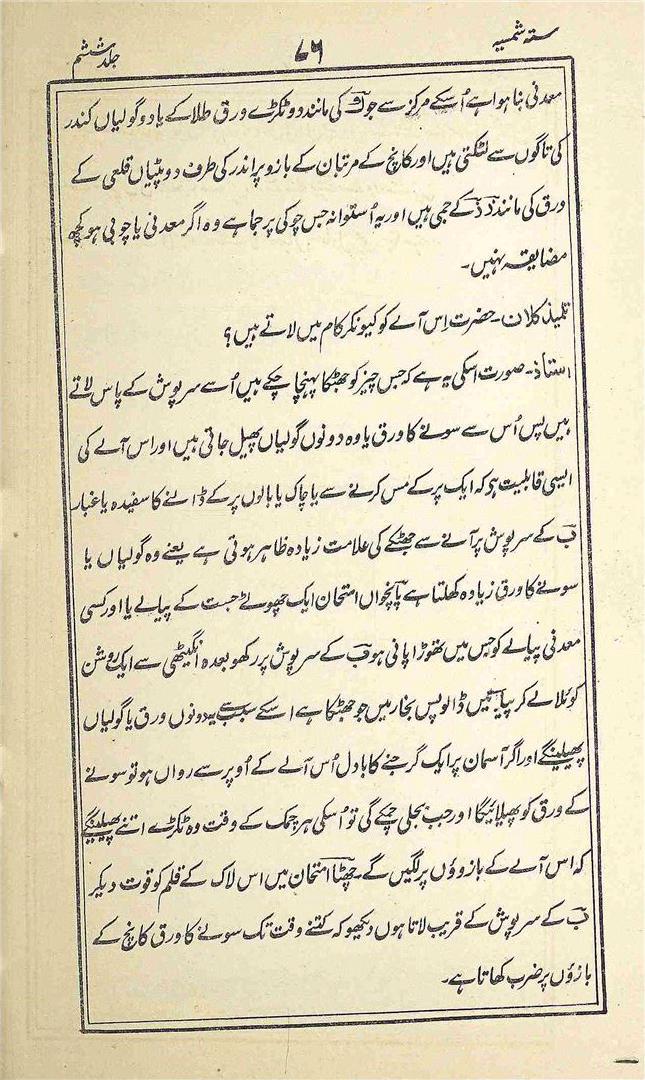 ستہ شمسیہ ۷۶ جلد ششم
معدنی بنا ہوا ہے اُسکے مرکز سے جو کی مانند دو ٹکڑے ورق طلا کے یا دو گولیاں کندر
کی تاگوں سے لٹکتی ہیں اور کانچ کے مرتبان کے بازو پر اندر کی طرف دو پٹیاں قلعی کے
ورق کی مانند دَ دَ کے جمی ہیں اور یہ اُستوانہ جس چوکی پر جما ہے وہ اگر معدنی یا چوبی ہو کچھ
مضایقہ نہیں۔
تلمیذ کلان۔ حضرت اِس آلے کو کیونکر کام میں لاتے ہیں؟
استاذ۔ صورت اسکی یہ ہے کہ جس چیز کو جھٹکا پہنچا چکے ہیں اُسے سرپوش کے پاس لاتے
ہیں پس اُس سے سونے کا ورق یا وہ دونوں گولیاں پھیل جاتی ہیں اور اس آلے کی
ایسی قابلیت ہی کہ ایک پر کے مس کرنے سے یا چاک یا بالوں پر کے ڈالنے کا سفیدہ یا غبار
بَ کے سرپوش پر آنے سے جھٹکے کی علامت زیادہ ظاہر ہوتی ہے یعنے وہ گولیاں یا
سونے کا ورق زیادہ کھلتا ہے پانچواں امتحان ایک چھوٹے جست کے پیالے یا اور کسی
معدنی پیالے کو جس میں تھوڑا پانی ہو بَ کے سرپوش پر رکھو بعدہ انگیٹھی سے ایک روشن
کوئلا لے کر پیالہ میں ڈالو پس بخار میں جو جھٹکا ہے اسکے سبب سے یہ دونوں ورق یا گولیاں
پھیلینگے اور اگر آسمان پر ایک گرجنے کا بادل اُس آلے کے اُوپر سے رواں ہو تو سونے
کے ورق کو پھیلائیگا اور جب بجلی چمکے گی تو اُسکی ہر چمک کے وقت وہ ٹکڑے اتنے پھیلینگے
کہ اس آلے کے بازوؤں پر لگیں گے۔ چھٹا امتحان میں اس لاک کے قلم کو قوت دیکر
بَ کے سرپوش کے قریب لاتا ہوں دیکھو کہ کتنے وقت تک سونے کا ورق کانچ کے
بازوں پر ضرب کھاتا ہے۔